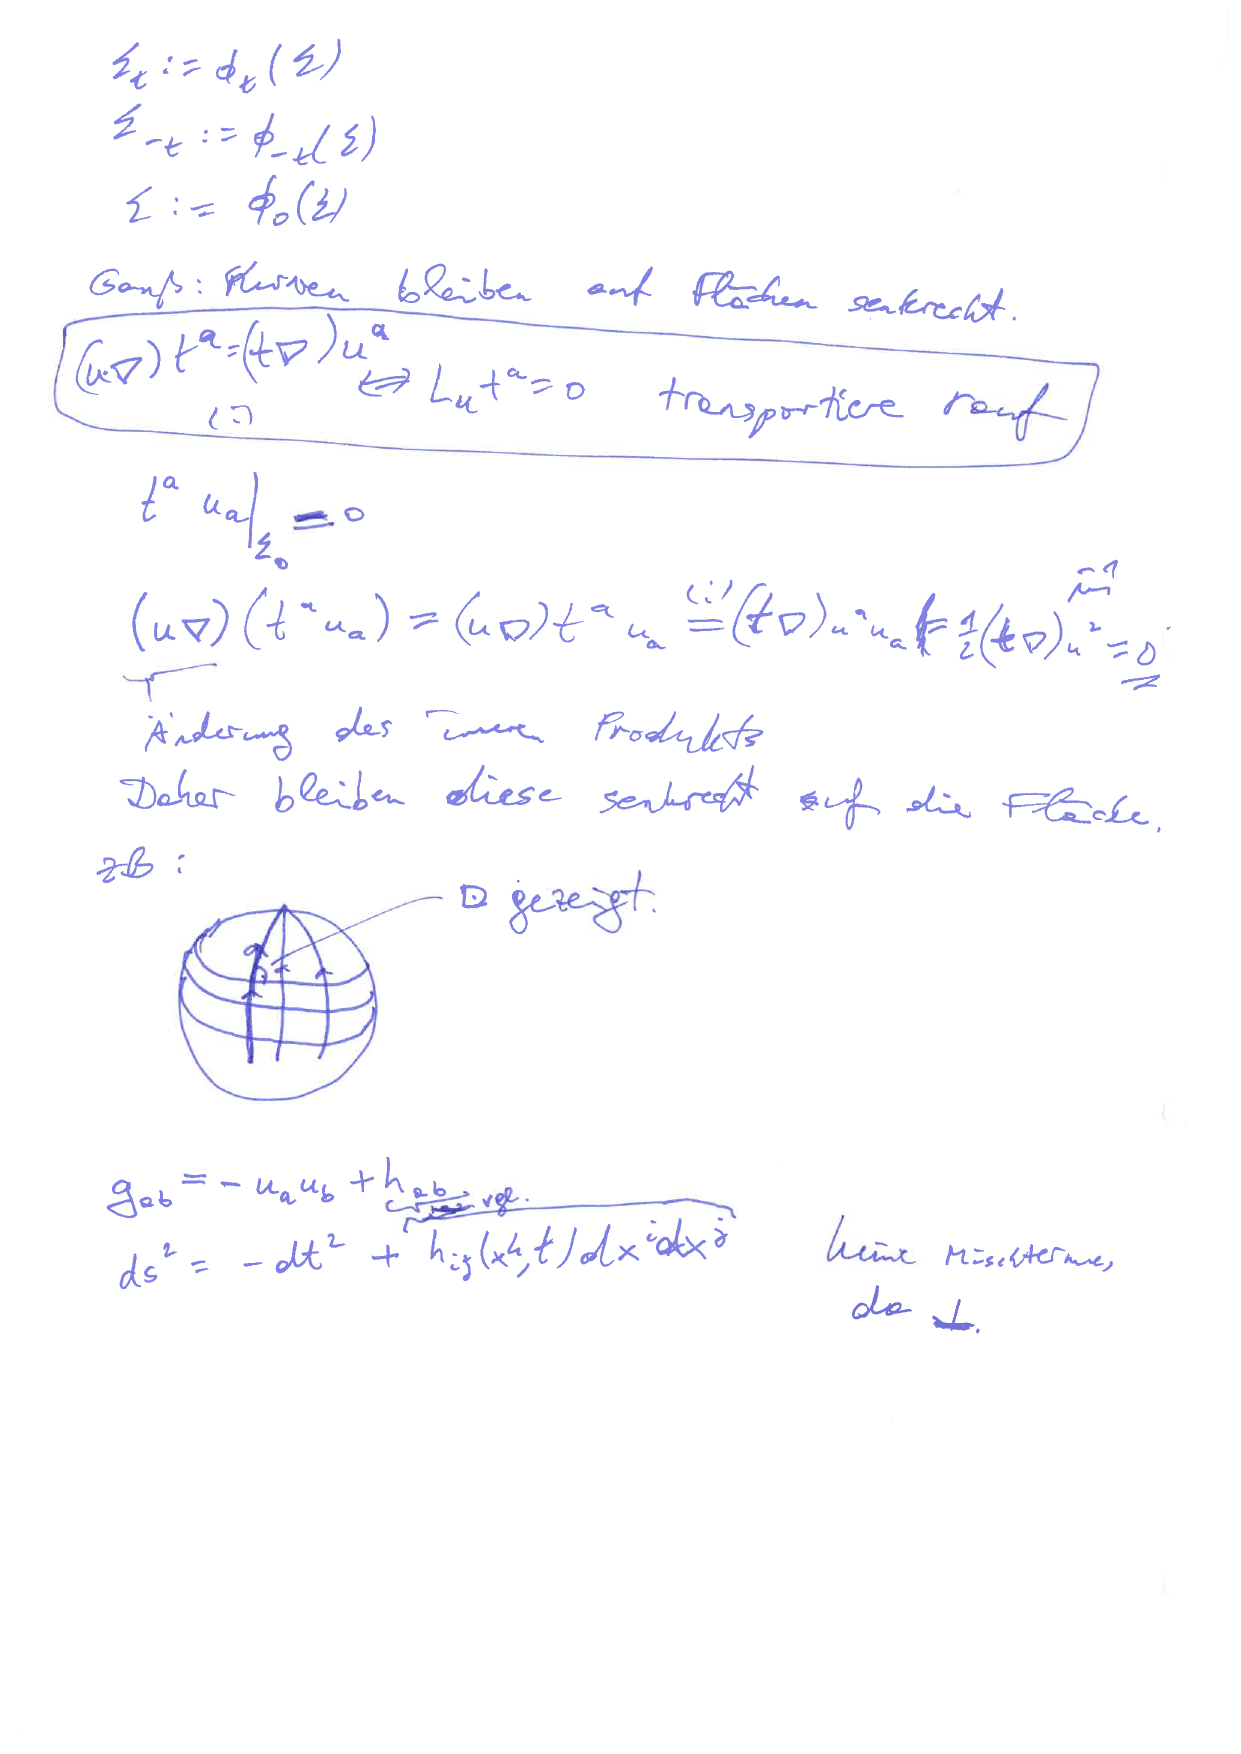 Σ_t := ϕ_t(Σ)
Σ_{-t} := ϕ_{-t}(Σ)
Σ := ϕ_0(Σ)
Gauß: Kurven bleiben auf Flächen senkrecht.
(u∇)t^a = (t∇)u^a ⇔ L_u t^a = 0 transportiere rauf
(:)
t^a u_a|_{Σ_0} = 0
(u∇)(t^a u_a) = (u∇)t^a u_a \overset{(:)}{=} (t∇)u^a u_a = 1/2 (t∇) \overset{-1}{u^2} = 0
Änderung des inneren Produkts
Daher bleiben diese senkrecht auf die Fläche.
zB:
gezeigt.
g_{ab} = - u_a u_b + h_{ab} vgl.
ds^2 = - dt^2 + h_{ij}(x^k, t) dx^i dx^j keine Mischterme,
da ⊥.